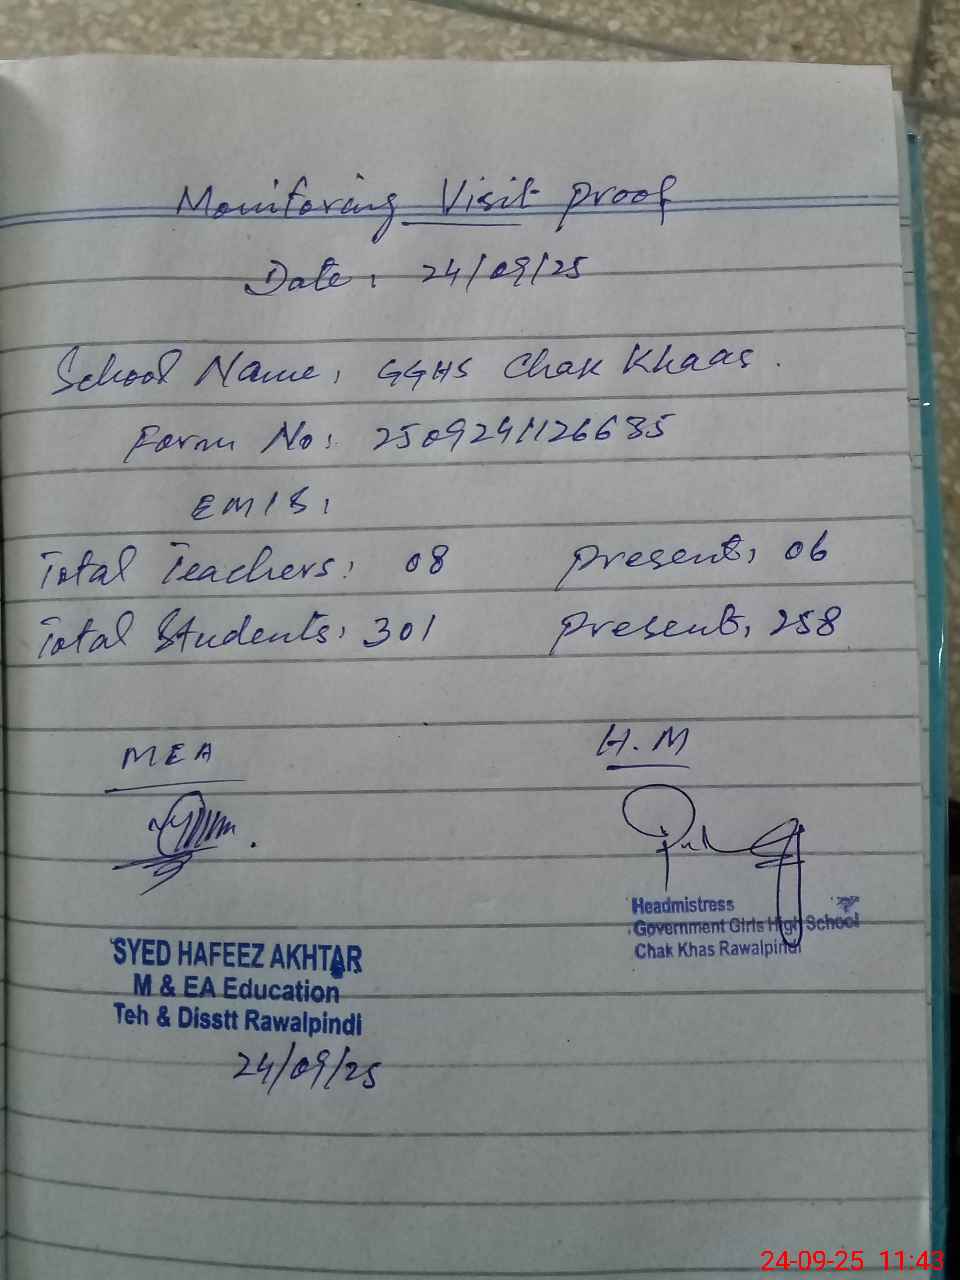 Monitoring Visit proof
Date: 24/09/25
School Name: GGHS Chak Khaas.
Form No: 2509241126635
EMIS:
Total Teachers: 08 present: 06
Total Students: 301 present: 258
MEA H.M
Headmistress
Government Girls High School
Chak Khas Rawalpindi
SYED HAFEEZ AKHTAR
M & EA Education
Teh & Disstt Rawalpindi
24/09/25
24-09-25 11:43